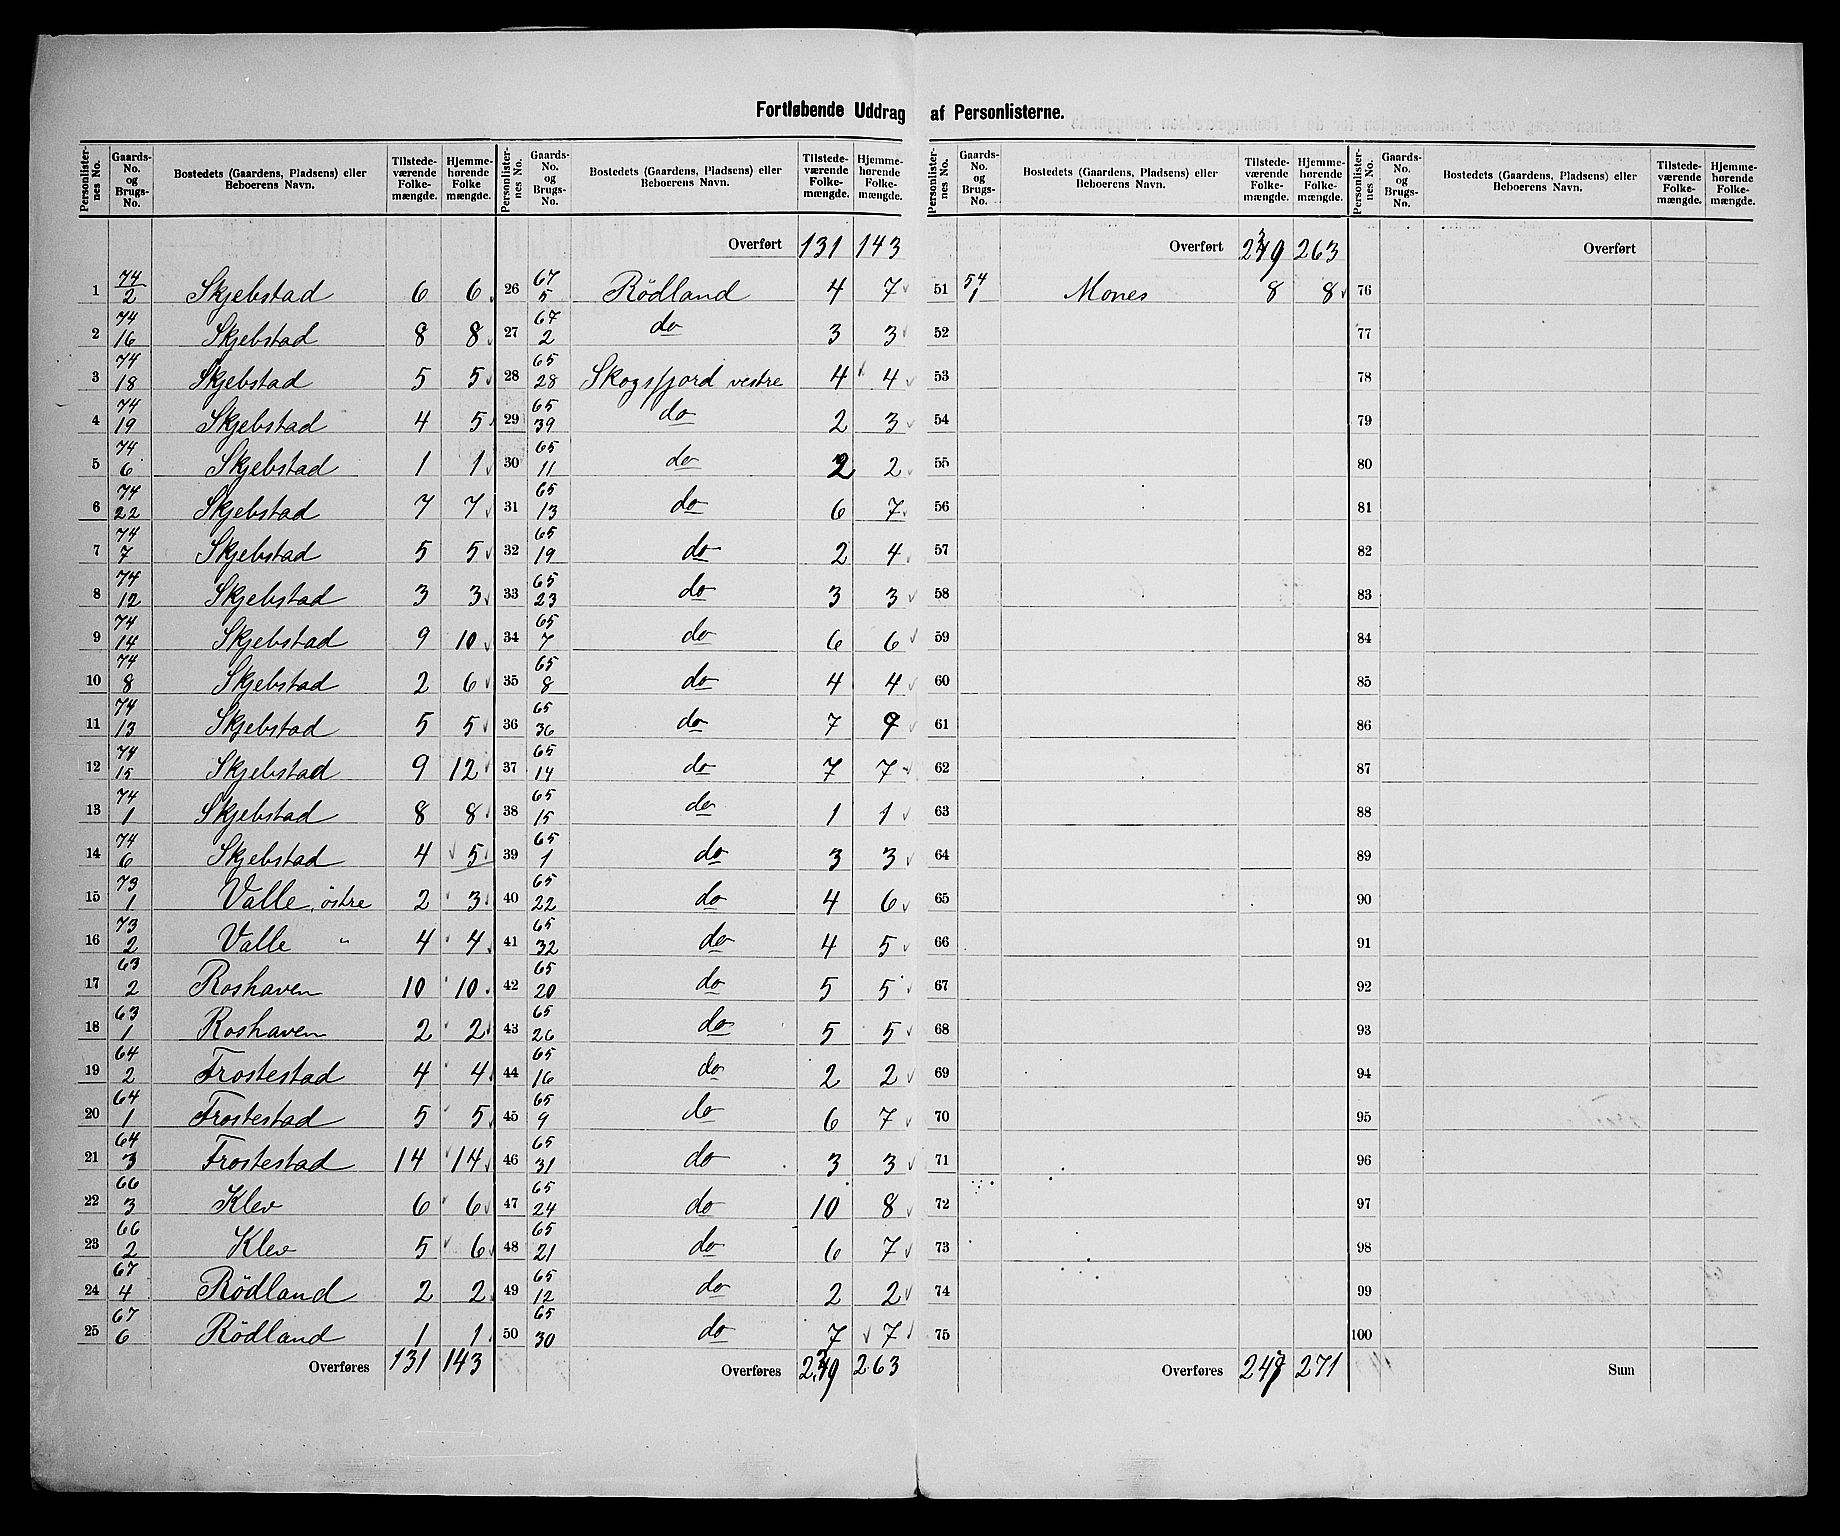 Fortløbende Uddrag af Personlisterne.
Personlister-nes No. | Gaards-No. og Brugs-No. | Bostedets (Gaardens, Pladsens) eller Beboerens Navn. | Tilstede-værende Folke-mængde. | Hjemme-hørende Folke mængde.
1 | 74/2 | Skjebstad | 6 | 6
2 | 74/16 | Skjebstad | 8 | 8
3 | 74/18 | Skjebstad | 5 | 5
4 | 74/19 | Skjebstad | 4 | 5
5 | 74/6 | Skjebstad | 1 | 1
6 | 74/22 | Skjebstad | 7 | 7
7 | 74/7 | Skjebstad | 5 | 5
8 | 74/12 | Skjebstad | 3 | 3
9 | 74/14 | Skjebstad | 9 | 10
10 | 74/8 | Skjebstad | 2 | 6
11 | 74/13 | Skjebstad | 5 | 5
12 | 74/15 | Skjebstad | 9 | 12
13 | 74/1 | Skjebstad | 8 | 8
14 | 74/6 | Skjebstad | 4 | 5
15 | 73/1 | Valle, östre | 2 | 3
16 | 73/2 | Valle " | 4 | 4
17 | 63/2 | Roshaven | 10 | 10
18 | 63/1 | Roshaven | 2 | 2
19 | 64/2 | Frostestad | 4 | 4
20 | 64/1 | Frostestad | 5 | 5
21 | 64/3 | Frostestad | 14 | 14
22 | 66/3 | Klev | 6 | 6
23 | 66/2 | Klev | 5 | 6
24 | 67/4 | Rödland | 2 | 2
25 | 67/6 | Rödland | 1 | 1
Overføres 131 143
Personlister-nes No. | Gaards-No. og Brugs-No. | Bostedets (Gaardens, Pladsens) eller Beboerens Navn. | Tilstede-værende Folke-mængde. | Hjemme-hørende Folke-mængde.
Overført 131 143
26 | 67/5 | Rödland | 4 | 7
27 | 67/2 | do | 3 | 3
28 | 65/28 | Skogsfjord vestre | 4 | 4
29 | 65/39 | do | 2 | 3
30 | 65/11 | do | 2 | 2
31 | 65/13 | do | 6 | 7
32 | 65/19 | do | 2 | 4
33 | 65/23 | do | 3 | 3
34 | 65/7 | do | 6 | 6
35 | 65/8 | do | 4 | 4
36 | 65/36 | do | 7 | 9
37 | 65/14 | do | 7 | 7
38 | 65/15 | do | 1 | 1
39 | 65/1 | do | 3 | 3
40 | 65/22 | do | 4 | 6
41 | 65/32 | do | 4 | 5
42 | 65/20 | do | 5 | 5
43 | 65/26 | do | 5 | 5
44 | 65/16 | do | 2 | 2
45 | 65/9 | do | 6 | 7
46 | 65/31 | do | 3 | 3
47 | 65/24 | do | 10 | 8
48 | 65/21 | do | 6 | 7
49 | 65/12 | do | 2 | 2
50 | 65/30 | do | 7 | 7
Overføres 239 263
Personlister-nes No. | Gaards-No. og Brugs-No. | Bostedets (Gaardens, Pladsens) eller Beboerens Navn. | Tilstede-værende Folke-mængde. | Hjemme-hørende Folke-mængde.
Overført 239 263
51 | 54/1 | Mones | 8 | 8
52
53
54
55
56
57
58
59
60
61
62
63
64
65
66
67
68
69
70
71
72
73
74
75
Overføres 247 271
Personlister-nes No. | Gaards-No. og Brugs-No. | Bostedets (Gaardens, Pladsens) eller Beboerens Navn. | Tilstede-værende Folke-mængde. | Hjemme-hørende Folke-mængde.
Overført
76
77
78
79
80
81
82
83
84
85
86
87
88
89
90
91
92
93
94
95
96
97
98
99
100
Sum